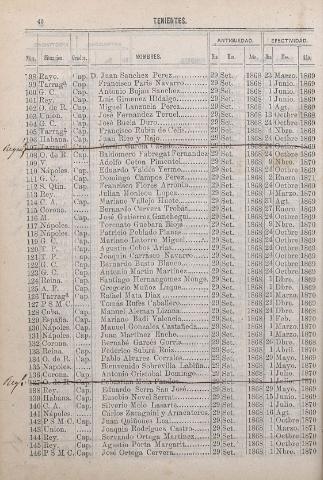 48 TENIENTES.
NOMBRES. ANTIGÜEDAD. EFECTIVIDAD.
98 Rayo. Cap. D. Juan Sanchez Perez 29 Set. 1868 23 Marzo. 1869
99 Tarrag.ª Cap. Francisco Paris Navarro 29 Set. 1868 1 Junio. 1869
100 G. C. Cap. Antonio Bujan Sanchez 29 Set. 1868 1 Junio. 1869
101 Rey. Cap. Luis Gimenez Hidalgo 29 Set. 1868 1 Junio. 1869
102 O. de R. Cap. Miguel Lanzuela Perez 29 Set. 1868 1 Agt. 1869
103 Union. Cap. José Fernandez Teruel 29 Set. 1868 13 Octbre 1869
104 G. C. Cap. José Bueia Diez 29 Set. 1868 13 Octbre 1869
105 Tarrag.ª Cap. Francisco Rubra de Celis 29 Set. 1868 1 Nbre. 1869
106 Habana. Cap. Juan Rico y Rajo 29 Set. 1868 24 Octbre 1869
108 O. de R. Cap. Baldomero Fabregat Fernandez 29 Set. 1868 24 Octbre 1869
109 V. Cap. Adolfo Coton Pimentel 29 Set. 1868 6 Nbre. 1870
110 Nápoles. Cap. Eduardo Valdés Yermo 29 Set. 1868 24 Octbre 1869
111 G. C. Cap. Domingo Campos Perez 29 Set. 1868 2 Enero 1871
112 S. Qtin. Cap. Francisco Flores Arronita 29 Set. 1868 24 Octbre 1869
113 Rey. Cap. Julian Morlozo Lopez 29 Set. 1868 1 Marzo. 1869
114 C. A. Cap. Mariano Vallejo Huote 29 Set. 1868 31 Agt. 1869
115 Corona. Cap. Bernardo Cuervera Trobat 29 Set. 1868 27 Enero 1869
116 M. Cap. José Gutierrez Ganchegui 29 Set. 1868 24 Octbre 1869
117 Nápoles Cap. Torcuato Guabara Rioja 29 Set. 1868 9 Nbre. 1870
118 Nápoles Cap. Patricio Poblado Planas 29 Set. 1868 24 Octbre 1869
119 G. C. Cap. Mariano Latorre Miguel 29 Set. 1868 24 Octbre 1869
120 T. P. Cap. Agustin Ochoa Arias 29 Set. 1868 24 Octbre 1869
121 T. P. Cap. Joaquin Carrasco Navarro 29 Set. 1868 24 Octbre 1869
122 G. C. Cap. Bernardo Busto Blanco 29 Set. 1868 24 Octbre 1869
123 G. C. Cap. Antonio Martin Martinez 29 Set. 1868 24 Octbre 1869
124 Reina. Cap. Santiago Hernangomez Monge 29 Set. 1868 1 Dbre. 1869
125 A. P. Cap. Gregorio Muñoz Luque 29 Set. 1868 1 Dbre. 1869
126 Tarrag.ª Cap. Rafael Mata Diaz 29 Set. 1868 21 Marzo. 1870
127 P S M C Cap. Tomás Ibañez Caballero 29 Set. 1868 21 Dbre. 1869
128 Cuba. Cap. Manuel Aleman Lozano 29 Set. 1868 21 Dbre. 1869
129 España. Cap. Mariano Badi Valencia 29 Set. 1868 1 Feb. 1870
130 Nápoles. Cap. Manuel Gonzalez Castañeda 29 Set. 1868 1 Marzo. 1870
131 Nápoles. Cap. Juan Martinez Eucho 29 Set. 1868 1 Marzo. 1870
132 Corona. Cap. Bernabé Garcés Gorris 29 Set. 1868 26 Dbre. 1869
133 Reina. Cap. Federico Subiza Roiz 29 Set. 1868 1 Abril. 1870
134 O. de R. Cap. Pablo Alvarez Corrales 29 Set. 1868 29 Mayo. 1869
135 Nápoles. Cap. Bienvenido Sobrevilla Labiña 29 Set. 1868 1 Mayo. 1870
136 Corona. Cap. Antonio Orlosbal Domingo 29 Set. 1868 1 Julio. 1870
138 Rey. Cap. Eduardo Serra San José 29 Set. 1868 29 Mayo. 1869
139 Habana. Cap. Eusebio Novel Serra 29 Set. 1868 15 Junio. 1869
140 G. A. Cap. Silverio Melo Lazarte 29 Set. 1868 1 Julio. 1870
141 Nápoles. Cap. Carlos Zaragoini y Armenteros 29 Set. 1868 16 Agt. 1869
142 P S M C Cap. Juan Quiñones Loa 29 Set. 1868 1 Octbre 1870
143 Union. Cap. Joaquin Rodriguez Castro 29 Set. 1868 1 Octbre 1870
144 Rey. Cap. Servando Ortega Martinez 29 Set. 1868 1 Octbre 1870
145 Rey. Cap. Agustin Porta Margarit 29 Set. 1868 1 Octbre 1870
146 P S M C Cap. José Ortega Cervera 29 Set. 1868 1 Nbre. 1870